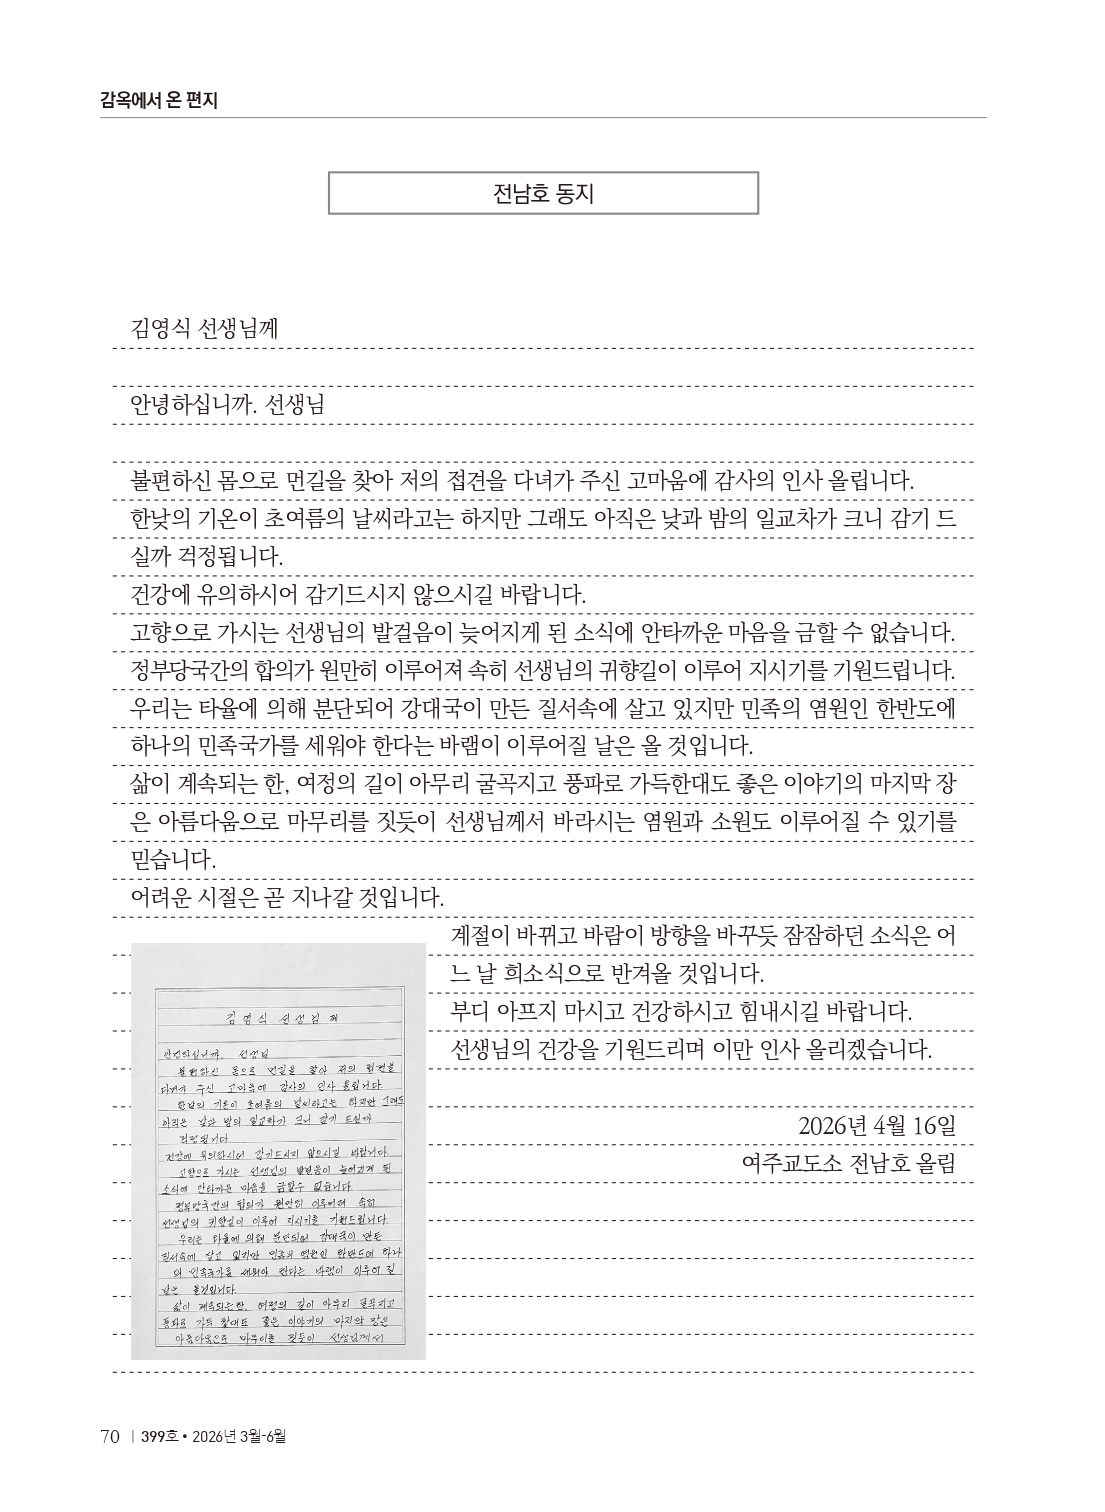 감옥에서 온 편지
전남호 동지
김영식 선생님께
안녕하십니까. 선생님
불편하신 몸으로 먼길을 찾아 저의 접견을 다녀가 주신 고마움에 감사의 인사 올립니다.
한낮의 기온이 초여름의 날씨라고는 하지만 그래도 아직은 낮과 밤의 일교차가 크니 감기 드
실까 걱정됩니다.
건강에 유의하시어 감기드시지 않으시길 바랍니다.
고향으로 가시는 선생님의 발걸음이 늦어지게 된 소식에 안타까운 마음을 금할 수 없습니다.
정부당국간의 합의가 원만히 이루어져 속히 선생님의 귀향길이 이루어 지시기를 기원드립니다.
우리는 타율에 의해 분단되어 강대국이 만든 질서속에 살고 있지만 민족의 염원인 한반도에
하나의 민족국가를 세워야 한다는 바램이 이루어질 날은 올 것입니다.
삶이 계속되는 한, 여정의 길이 아무리 굴곡지고 풍파로 가득한대도 좋은 이야기의 마지막 장
은 아름다움으로 마무리를 짓듯이 선생님께서 바라시는 염원과 소원도 이루어질 수 있기를
믿습니다.
어려운 시절은 곧 지나갈 것입니다.
계절이 바뀌고 바람이 방향을 바꾸듯 잠잠하던 소식은 어
느 날 희소식으로 반겨올 것입니다.
부디 아프지 마시고 건강하시고 힘내시길 바랍니다.
선생님의 건강을 기원드리며 이만 인사 올리겠습니다.
2026년 4월 16일
여주교도소 전남호 올림
김영식 선생님께
안녕하십니까. 선생님
불편하신 몸으로 먼길을 찾아 저의 접견을
다녀가 주신 고마움에 감사의 인사 올립니다
한낮의 기온이 초여름의 날씨라고는 하지만 그래도
아직은 낮과 밤의 일교차가 크니 감기 드실까
걱정됩니다
건강에 유의하시어 감기드시지 않으시길 바랍니다.
고향으로 가시는 선생님의 발걸음이 늦어지게 된
소식에 안타까운 마음을 금할수 없습니다.
정부당국간의 합의가 원만히 이루어져 속히
선생님의 귀향길이 이루어 지시기를 기원드립니다.
우리는 타율에 의해 분단되어 강대국이 만든
질서속에 살고 있지만 민족의 염원인 한반도에 하나
의 민족국가를 세워야 한다는 바램이 이루어 질
날은 올것입니다.
삶이 계속되는한, 여정의 길이 아무리 굴곡지고
풍파로 가득 할대도 좋은 이야기의 마지막 장은
아름다움으로 마무리를 짓듯이 선생님께서
70 | 399호 • 2026년 3월-6월